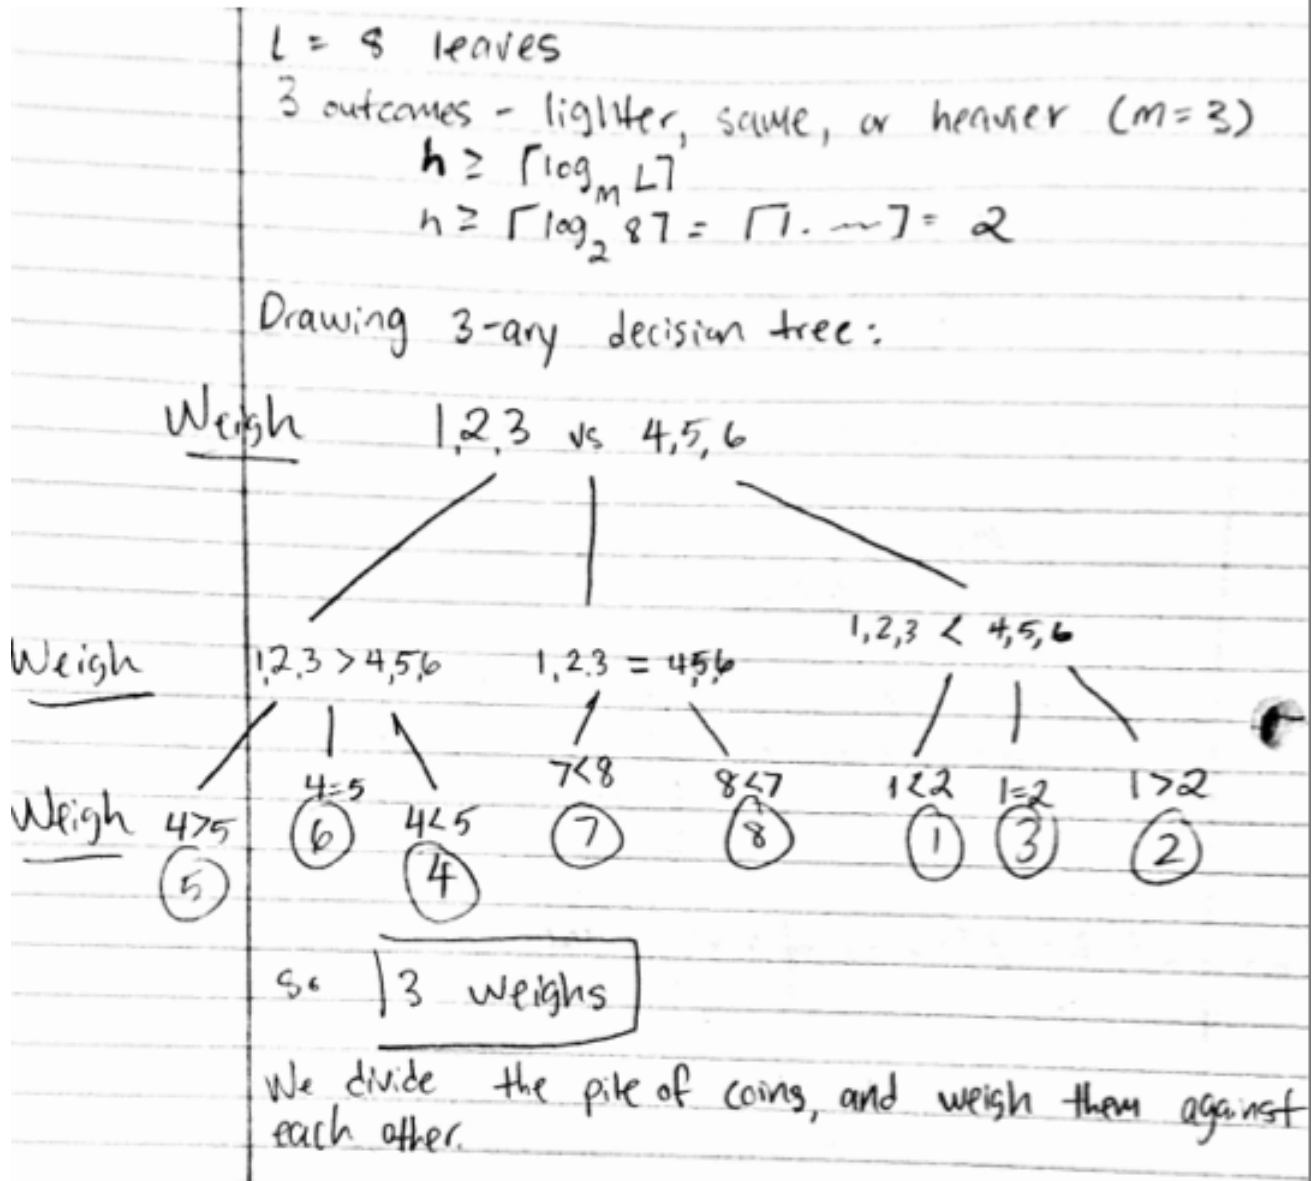 L = 8 leaves
3 outcomes - lighter, same, or heavier (m=3)
h ≥ ⌈log_m L⌉
h ≥ ⌈log_2 8⌉ = ⌈1. ~~⌉ = 2
Drawing 3-ary decision tree:
Weigh 1,2,3 vs 4,5,6
1,2,3 < 4,5,6
Weigh 1,2,3 > 4,5,6 1,2,3 = 4,5,6
4=5 7<8 8<7 1<2 1=2 1>2
Weigh 4>5 6 4<5 7 8 1 3 2
5 4
So 3 weighs
We divide the pile of coins, and weigh them against
each other.